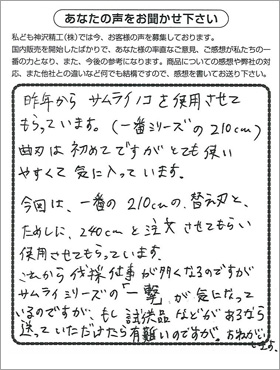 あなたの声をお聞かせ下さい
私ども神沢精工(株)では今、お客様の声を募集しております。
国内販売を開始したばかりで、あなた様の率直なご意見、ご感想が私たちの一
番の力となり、また、今後の参考になります。商品についての感想や弊社の対
応、また他社との違いなど何でも結構ですので、感想を書いてお送り下さい。
昨年から サムライノコを使用させて
もらっています。(一番シリーズの210cm)
曲刃は初めてですがとても使い
やすくて気に入っています。
今回は、一番の210cmの、替刃と、
ためしに、240cmと注文させてもらい
使用させてもらっています。
これから伐採仕事が多くなるのですが
サムライシリーズの「一撃」が気になって
いるのですが、もし試供品などがあるなら
送っていただけたら有難いのですが。おねがい
します。